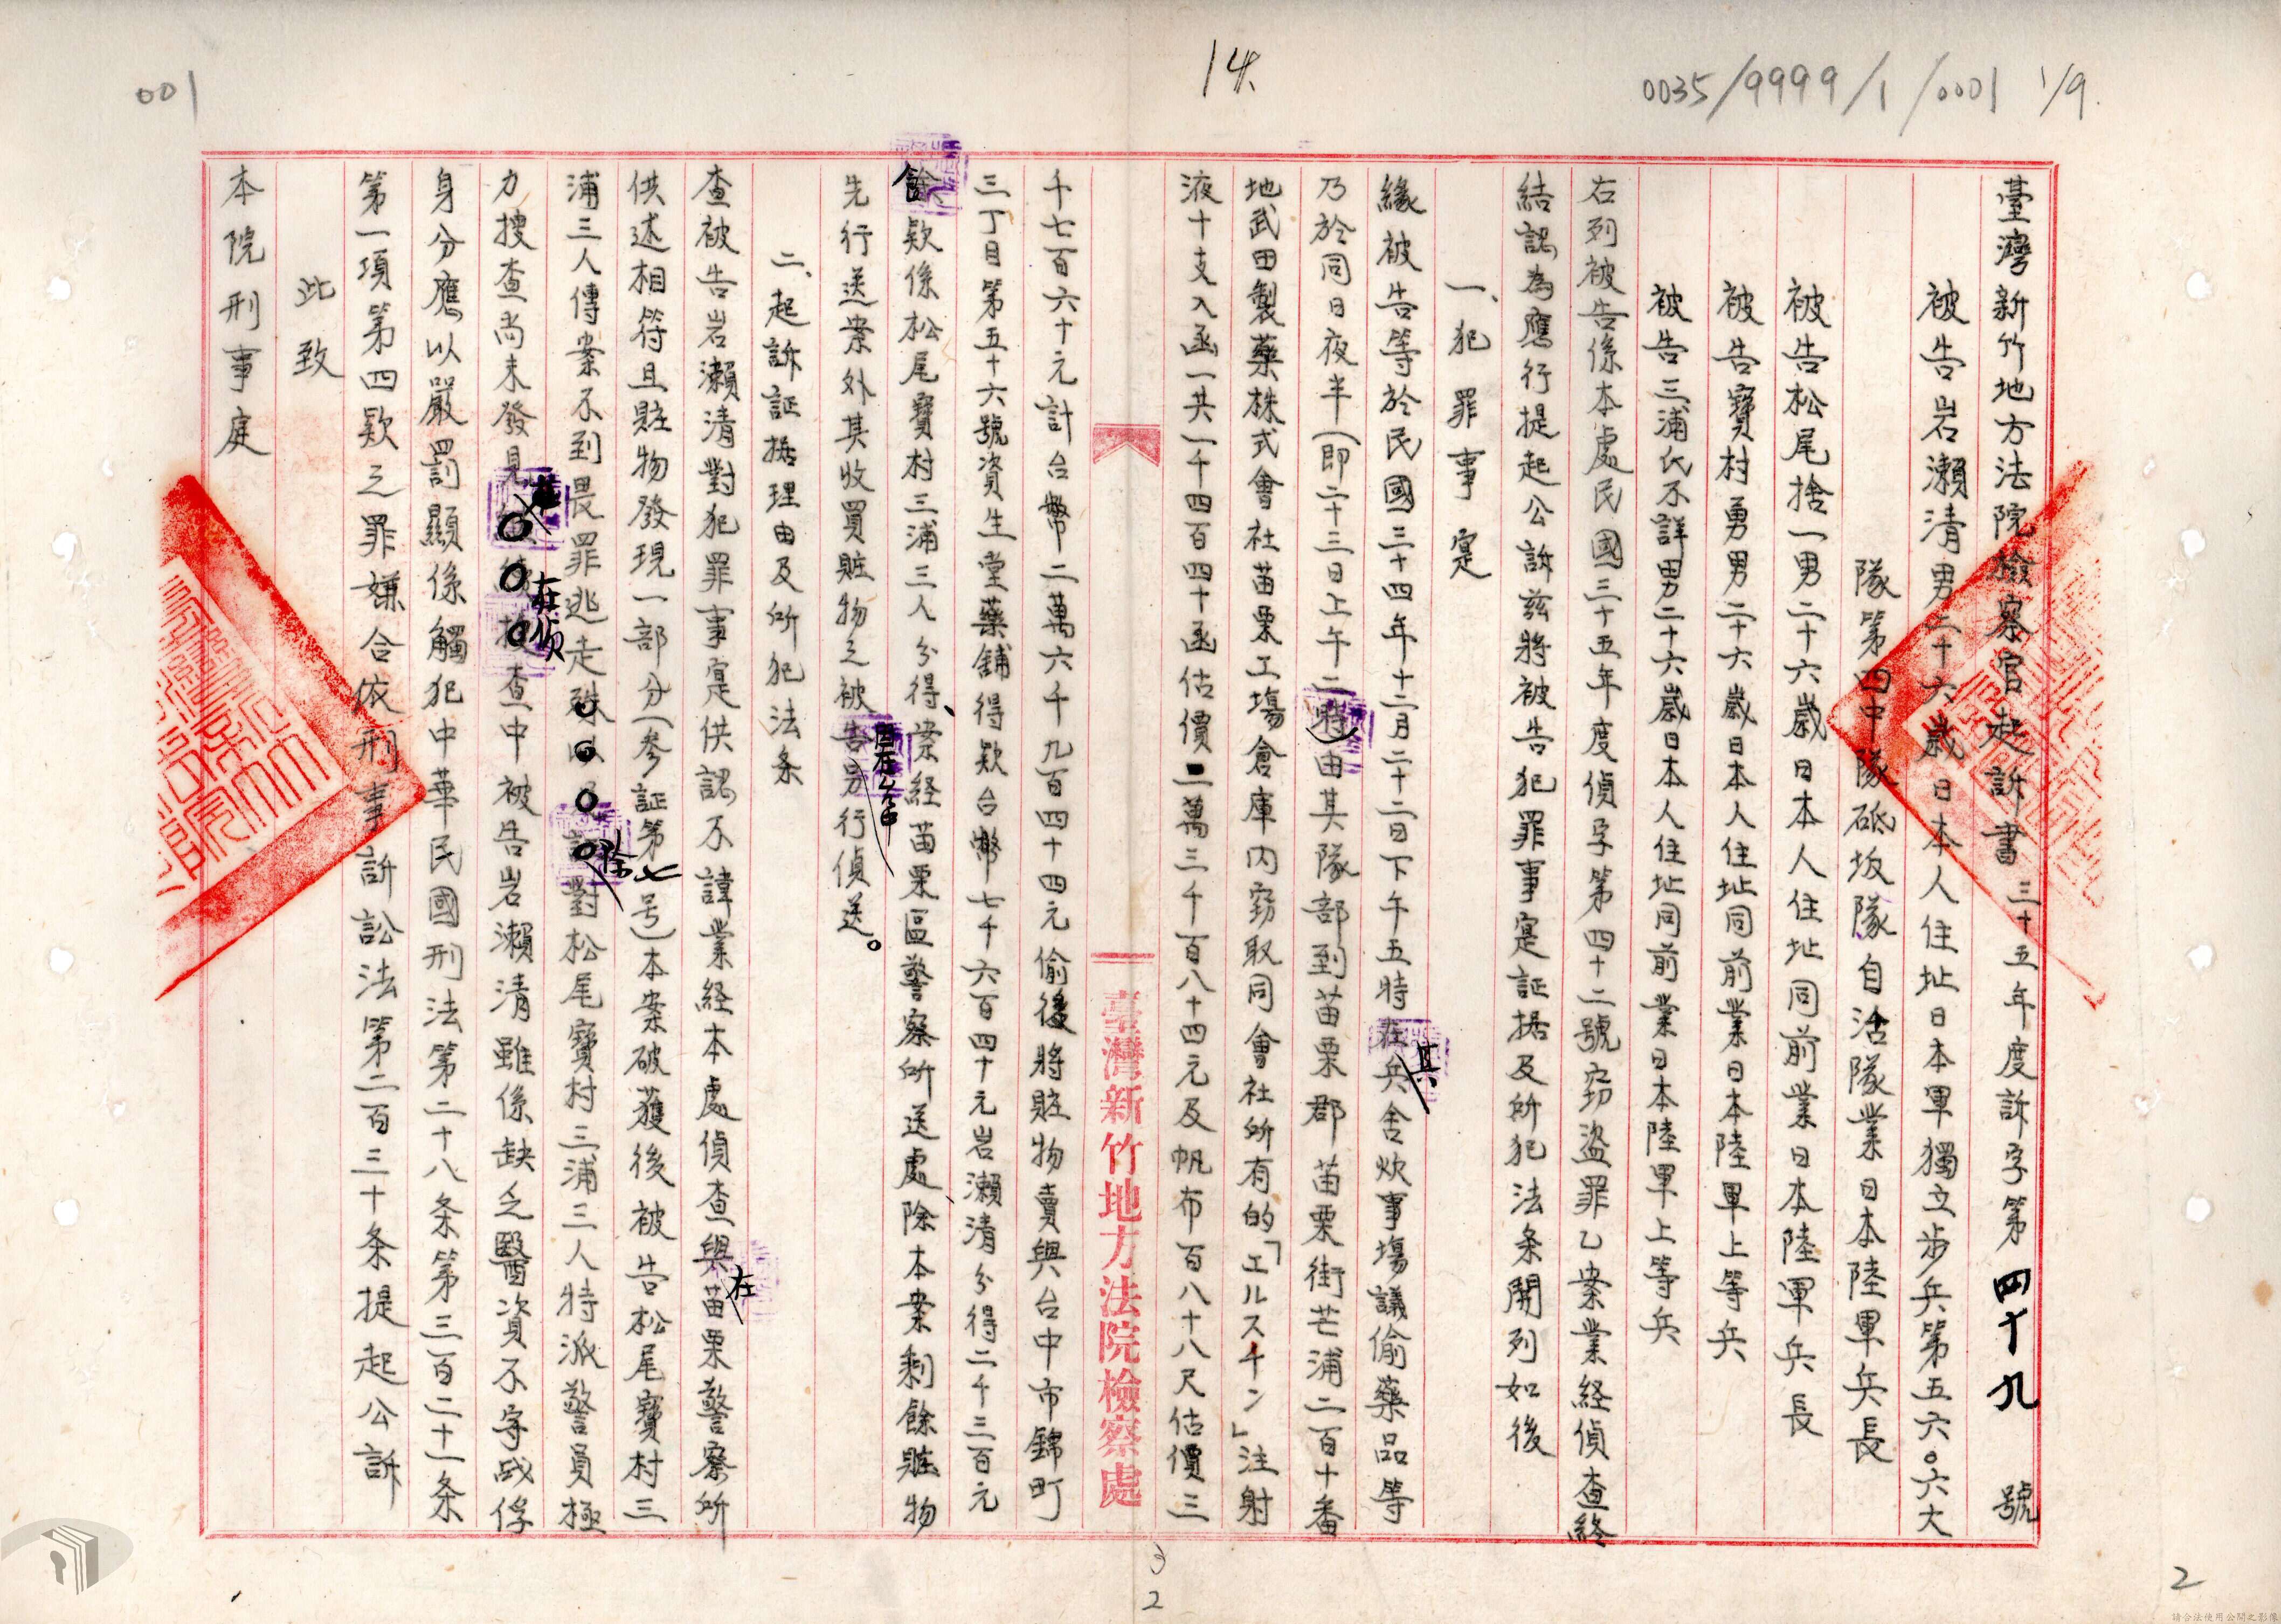 001
14
0035/9999/1/0001 1/9
臺灣新竹地方法院檢察官起訴書 三十五年度訴字第四十九號
被告岩瀨清男二十六歲日本人住址日本軍獨立步兵第五六〇六大
隊第四中隊砥坂隊自活隊業日本陸軍兵長
被告松尾捨一男二十六歲日本人住址同前業日本陸軍兵長
被告寶村勇男二十六歲日本人住址同前業日本陸軍上等兵
被告三浦氏不詳男二十六歲日本人住址同前業日本陸軍上等兵
右列被告係本處民國三十五年度偵字第四十二號竊盜罪乙案業経偵查終
結認為應行提起公訴茲將被告犯罪事寔証据及所犯法条開列如後
一、犯罪事寔
緣被告等於民國三十四年十二月二十二日下午五時在其兵舍炊事場議偷藥品等
乃於同日夜半(即二十三日上午二時)由其隊部到苗栗郡苗栗街芒浦二百十番
地武田製藥株式會社苗栗工場倉庫内竊取同會社所有的「エルスチン」注射
液十支入函一共一千四百四十函估價二萬三千一百八十四元及帆布百八十八尺估價三
臺灣新竹地方法院檢察處
千七百六十元計台幣二萬六千九百四十四元偷後將賍物賣與台中市錦町
三丁目第五十六號資生堂藥舖得欵台幣七千六百四十元岩瀨清分得二千三百元
餘欵係松尾寶村三浦三人分得、案経苗栗區警察所送處除本案剩餘賍物
先行送案外其收買賍物之被告另行偵送。
二、起訴証据理由及所犯法条
查被告岩瀨清對犯罪事寔供認不諱業経本處偵查與在苗栗警察所
供述相符且賍物發現一部分(参証第七号)本案破獲後被告松尾寶村三
浦三人傳案不到畏罪逃走除對松尾寶村三浦三人特派警員極
力搜查尚未發見在偵查中被告岩瀨清雖係缺乏醫資不字或俘
身分應以嚴罰顯係觸犯中華民國刑法第二十八条第三百二十一条
第一項第四欵之罪嫌合依刑事訴訟法第二百三十条提起公訴
此致
本院刑事庭
3
2
2
請合法使用公開之影像